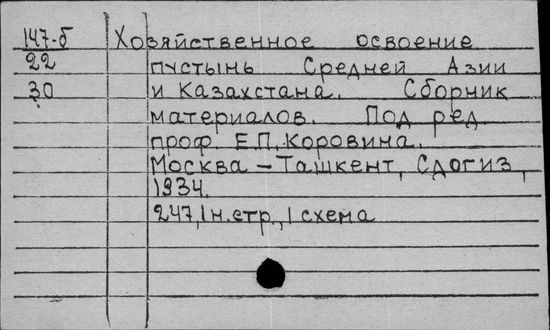 147-б Хозяйственное освоение
22 пустынь Средней Азии
30 и Казахстана. Сборник
материалов. Под ред
проф. Е.П. Коровина.
Москва – Ташкент, Сдогиз,
1934.
247, 1 н.стр., 1 схема